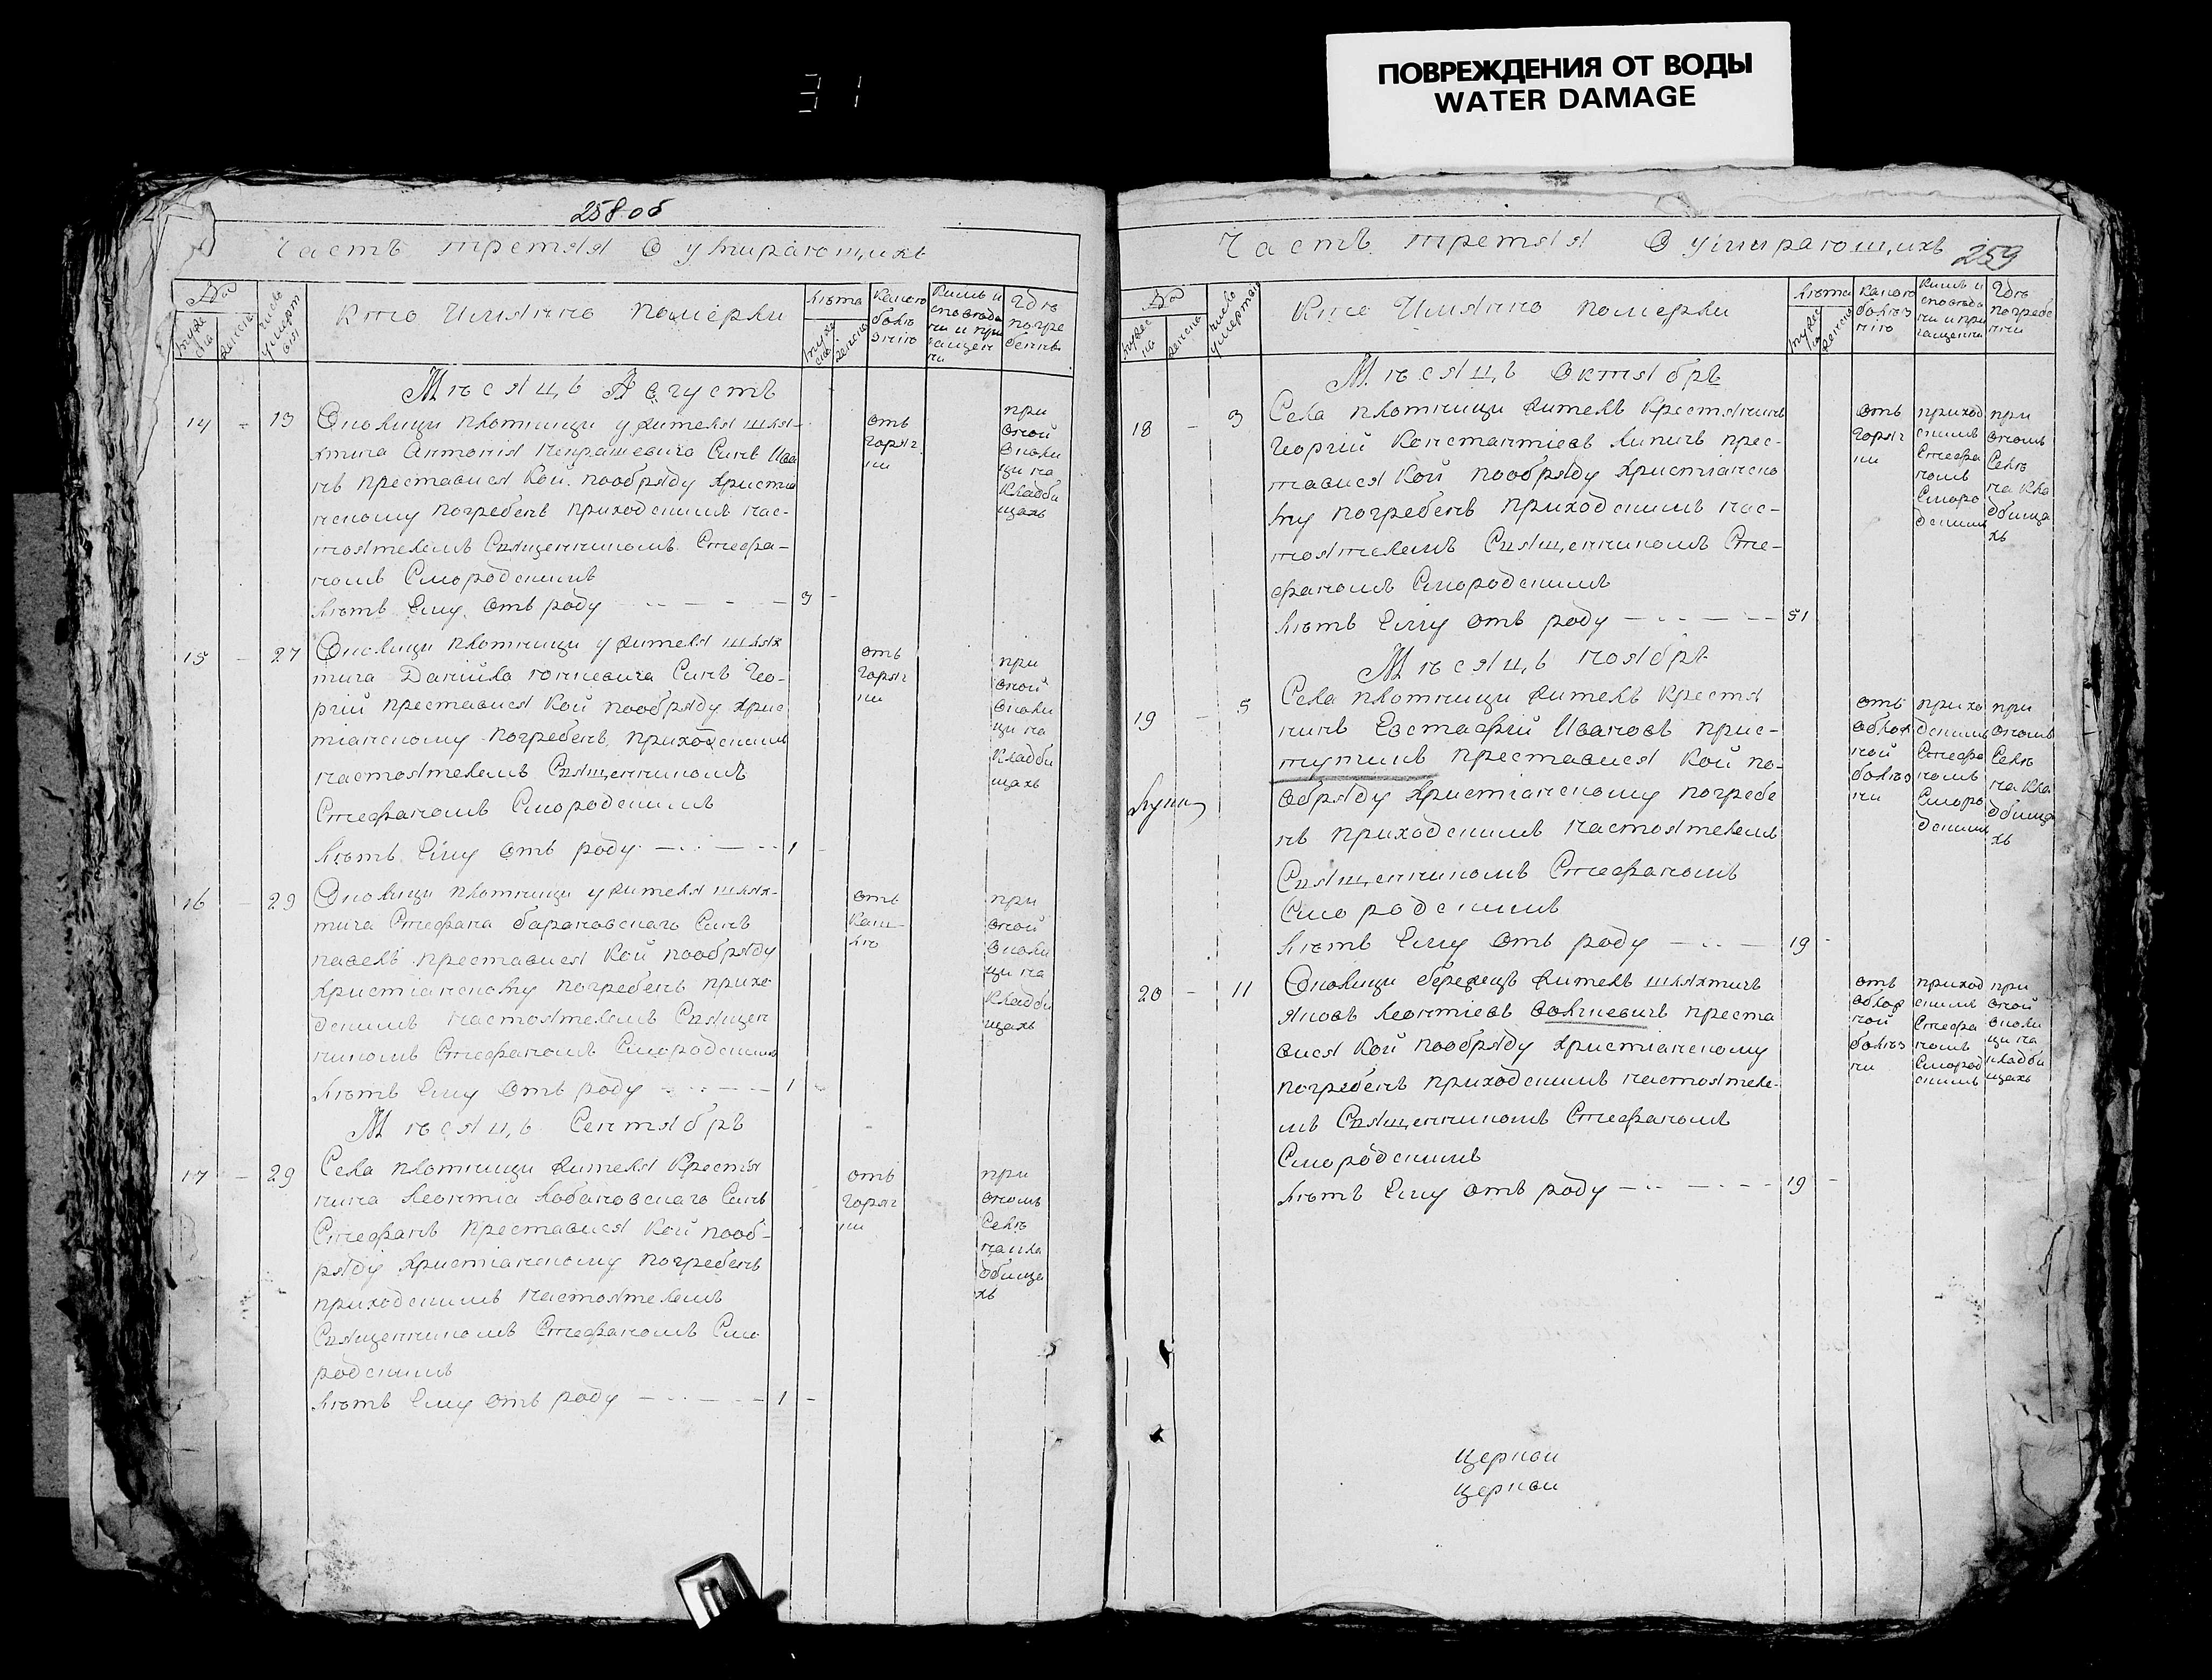 31
ПОВРЕЖДЕНИЯ ОТ ВОДЫ
WATER DAMAGE
258 об
Часть третяя О умирающихъ
№
мужеска
женска
число умертвія
Кто Имянно померли
лѣта
мужеска
женска
Какою болѣзнію
Кимъ исповѣдани и приобщенни
Гдѣ погребенны
Мѣсяцъ Августъ
14 - 13
Околици плотници у жителя шлях-
тича Антонія Сын Ива
нъ преставися кой пообряду христиа
нскому погребенъ приходскимъ нас-
тоятелемъ Священникомъ Стефа-
номъ Смородскимъ
лѣтъ Ему отъ роду - - - - 3 -
отъ
горяч
ки
при
оной
околи
ци на
кладби
щахъ
15 - 27
Околици плотници у жителя шлях
тича Даніила Синъ Гео-
ргій преставися кой пообряду хрис
тіанскому погребенъ приходскимъ
настоятелемъ Священникомъ
Стефаномъ Смородскимъ
лѣтъ Ему отъ роду - - - - 1 -
отъ
горяч
ки
при
оной
околи
ци на
кладби
щахъ
16 - 29
Околици плотници у жителя шлях-
тича Стефана барановскаго Синъ
павелъ преставися кой пообряду
христіанскому погребенъ прихо
дскимъ настоятелемъ Священ
никомъ Стефаномъ Смородскимъ
лѣтъ Ему отъ роду - - - - 1 -
отъ
каш
лю
при
оной
околи
ци на
кладби
щахъ
Мѣсяцъ Сентябрь
17 - 29
Села плотници жителя Крестья
нина Леонтіа Лобановскаго Синъ
Стефанъ преставися кой пооб-
ряду христіанскому погребенъ
приходскимъ настоятелемъ
Священникомъ Стефаномъ Смо
родскимъ
лѣтъ Ему отъ роду - - - - 1 -
отъ
горяч
ки
при
ономъ
Селѣ
на кла
дбища
хъ
Часть третяя О умирающихъ
259
№
мужеска
женска
число умертвія
Кто Имянно померли
лѣта
мужеска
женска
Какою болѣзнію
Кимъ исповѣдани и приобщенни
Гдѣ погребенни
Мѣсяцъ Октябрь
18 - 3
Села плотници житель Крестянинъ
Георгій Константіевъ Липичъ прес-
тавися кой пообряду христіанско
му погребенъ приходскимъ нас-
тоятелемъ Священникомъ Сте-
фаномъ Смородскимъ
лѣтъ Ему отъ роду - - - - 51
отъ
горяч
ки
приход
скимъ
Стефа
номъ
Сморо
дскимъ
при
ономъ
Селѣ
на кла
дбища
хъ
Мѣсяцъ ноябрь
19 - 5
Села плотници житель Крестя
нинъ Евстафій Ивановъ прис-
тупчикъ преставися кой по-
обряду христіанскому погребе
нъ приходскимъ настоятелемъ
Священникомъ Стефаномъ
Смородскимъ
лѣтъ Ему отъ роду - - - 19 -
отъ
облож
ной
болѣз
ни
прихо
дскимъ
Стефа
номъ
Сморо
дскимъ
при
ономъ
Селѣ
на кла
дбища
хъ
20 - 11
Околици бережцъ житель шляхтичъ
Яковъ Леонтіевъ преста
вися кой пообряду христіанскому
погребенъ приходскимъ настояте-
мъ Священникомъ Стефаномъ
Смородскимъ
лѣтъ Ему отъ роду - - - - 19 -
отъ
облож
ной
болѣз
ни
приход
скимъ
Стефа
номъ
Смород
скимъ
при
оной
околи
ци на
кладби
щахъ
церкви
церкви